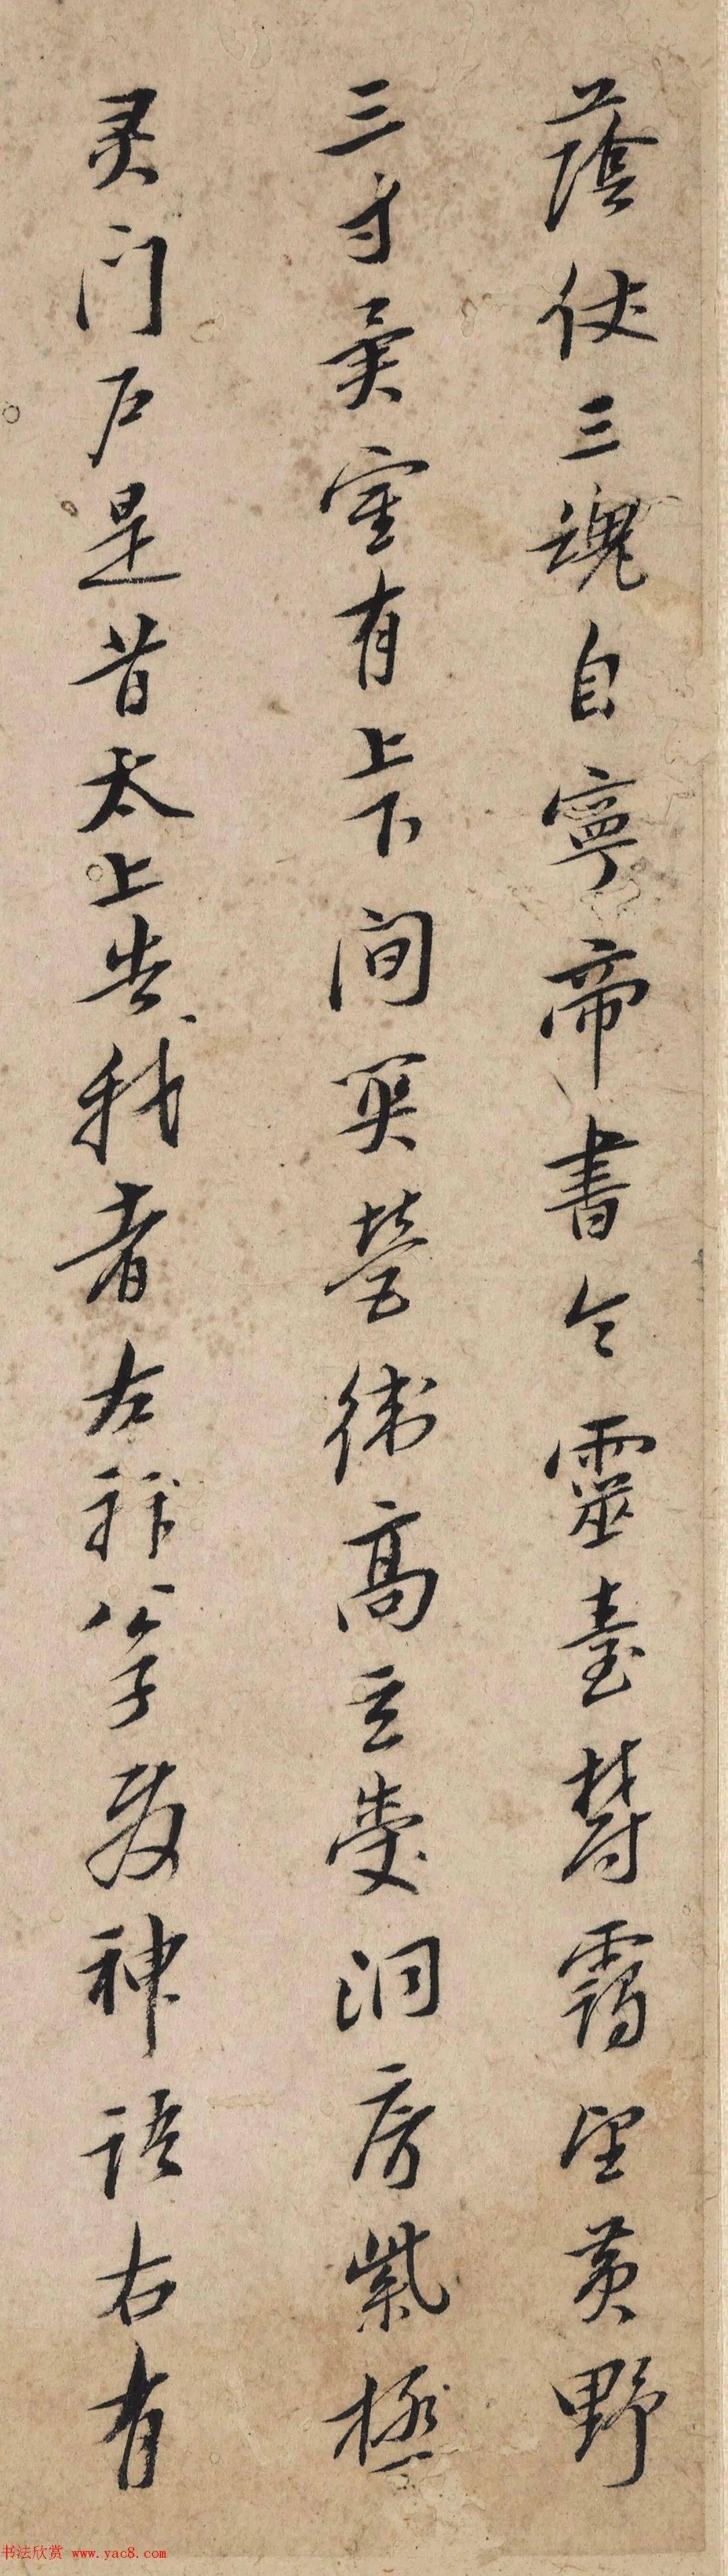 蔭仗三魂自寧帝書命靈臺欝靄望黃野
三寸異室有上下間關營衛高玄受洞房紫極
灵门户是昔太上告我者左神公子發神語右有
书法欣赏 www.yac8.com